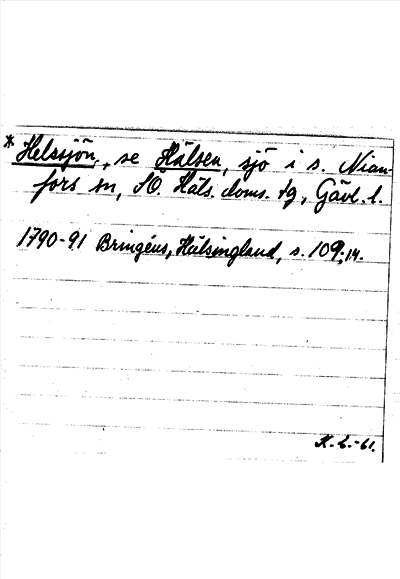 * Helssjön, se Hälsen, sjö i s. Nian-
fors sn, SO. Häls. doms. tg, Gävl. l.
1790-91 Bringéus, Hälsingland, s. 109:14.
K.L.-61.